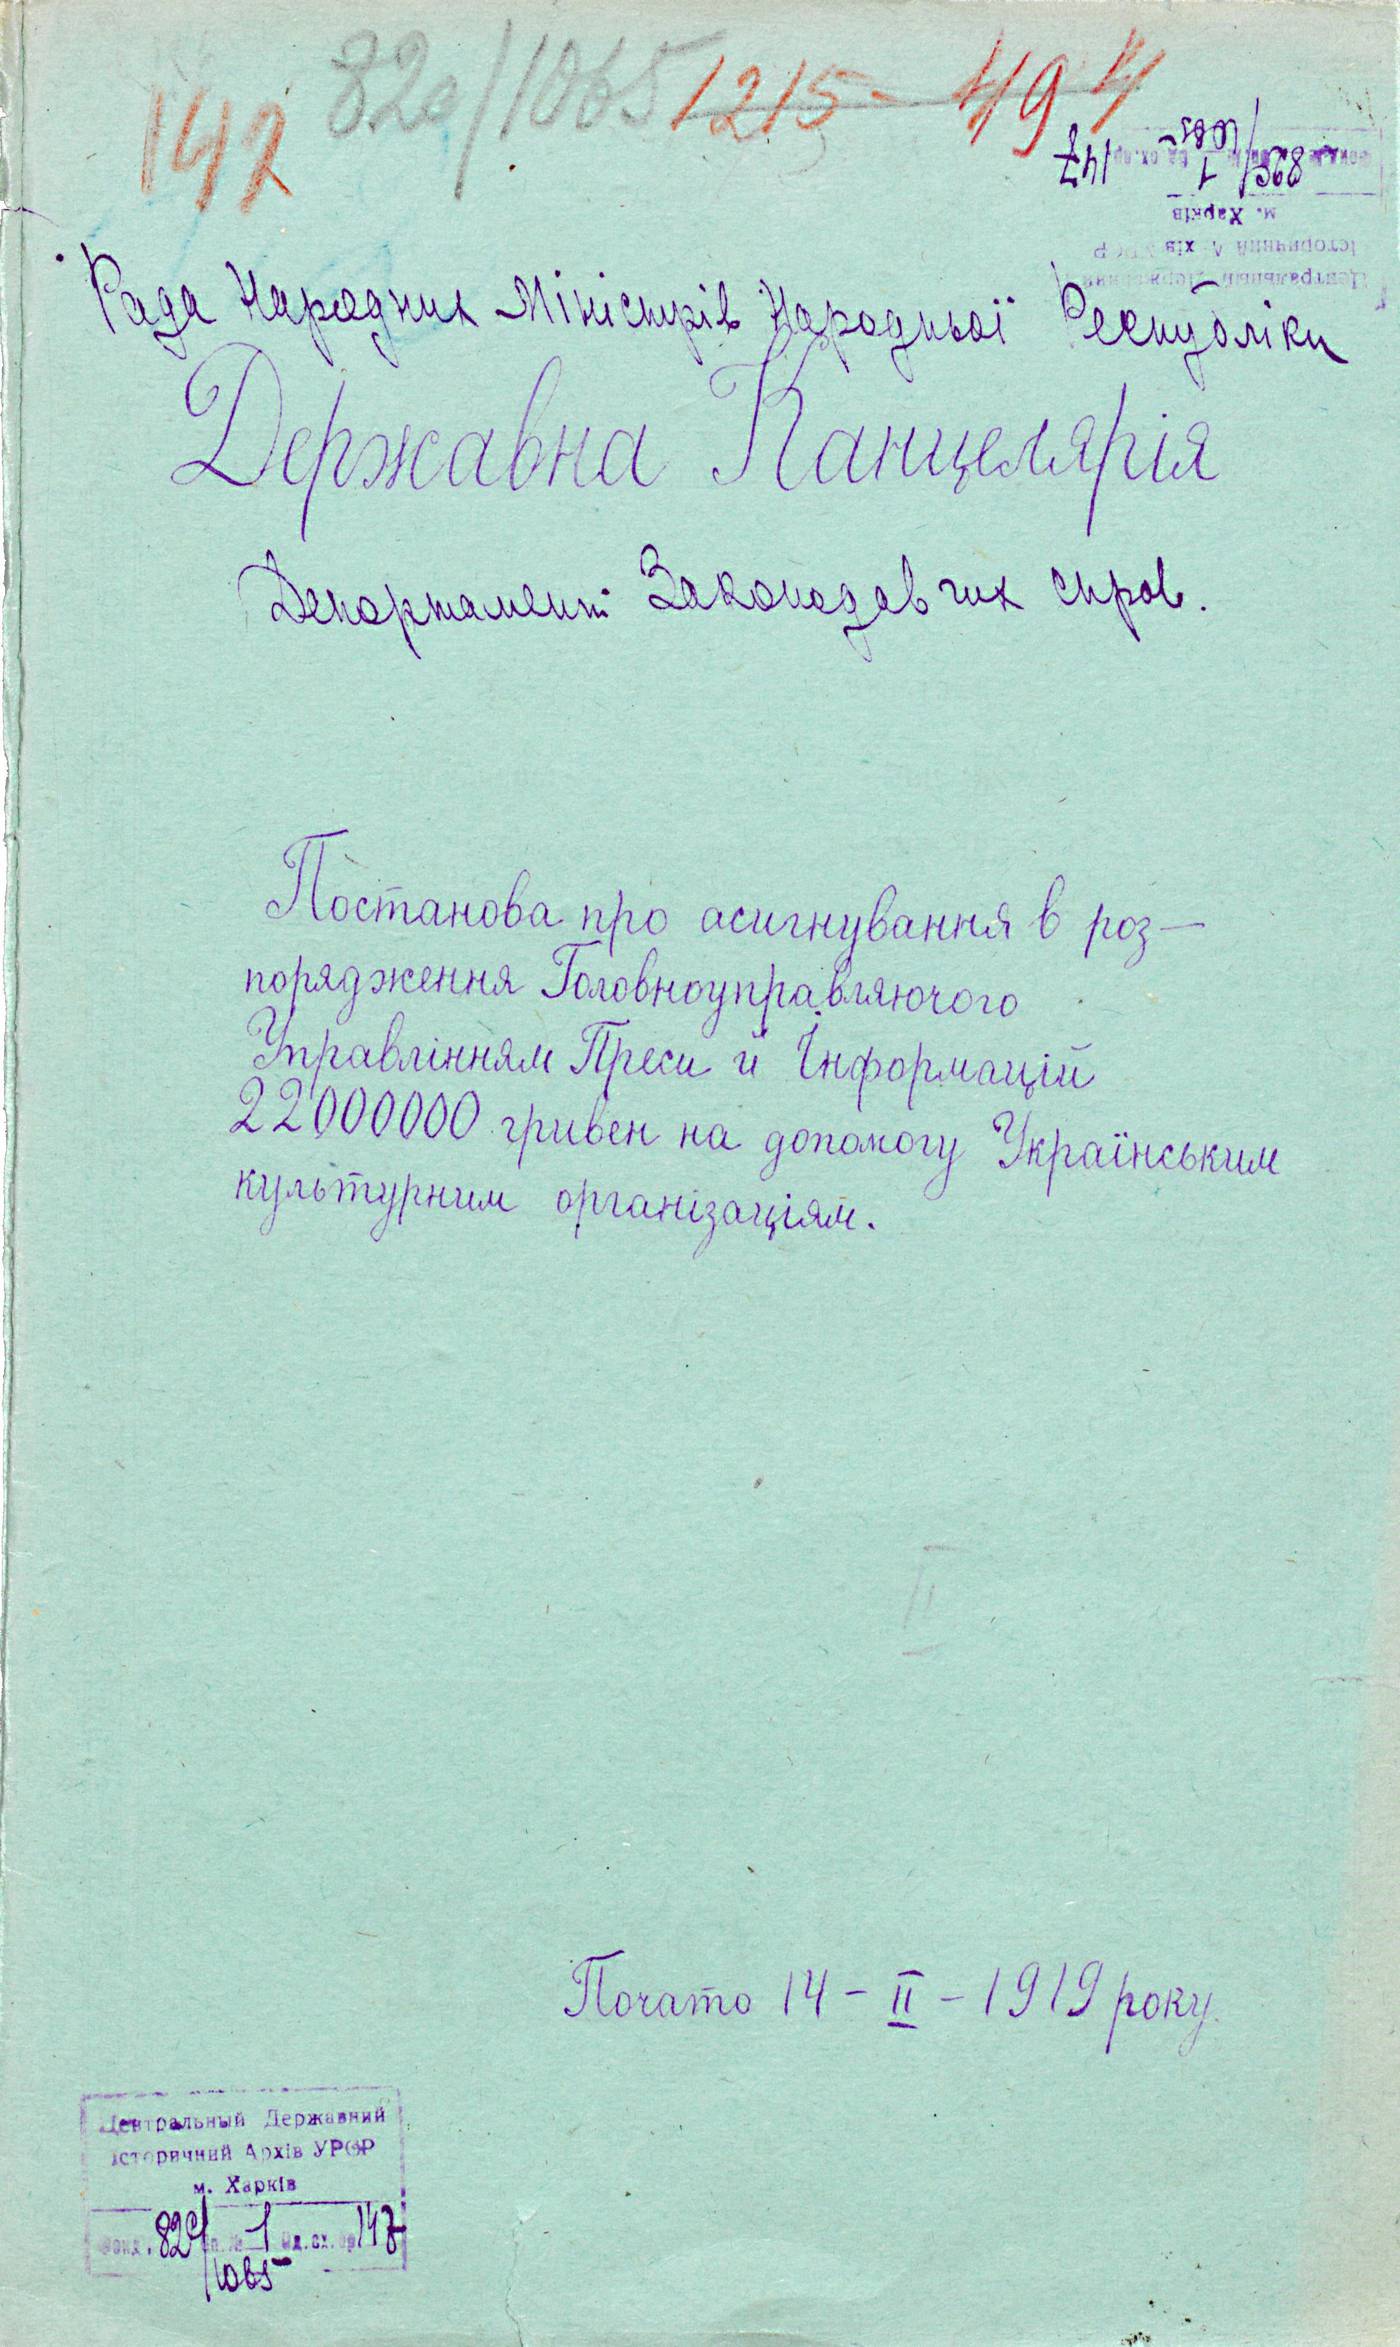 142 82c/1065 1215- 494
Центральный Державний
Історичний Архів УРСР
м. Харків
Рада Народних Міністрів Народньої Республіки
Державна Канцелярія
Департамент Законодавчих справ.
Постанова про асигнування в роз—
порядження Головноуправляючого
Управлінням Преси й Інформацій
22000000 гривен на допомогу Українським
культурним організаціям.
Почато 14 – II – 1919 року.
Центральный Державний
Історичний Архів УРСР
м. Харків
Фонд. 82c/1065 оп.№ 1 Од.сх.ор 147